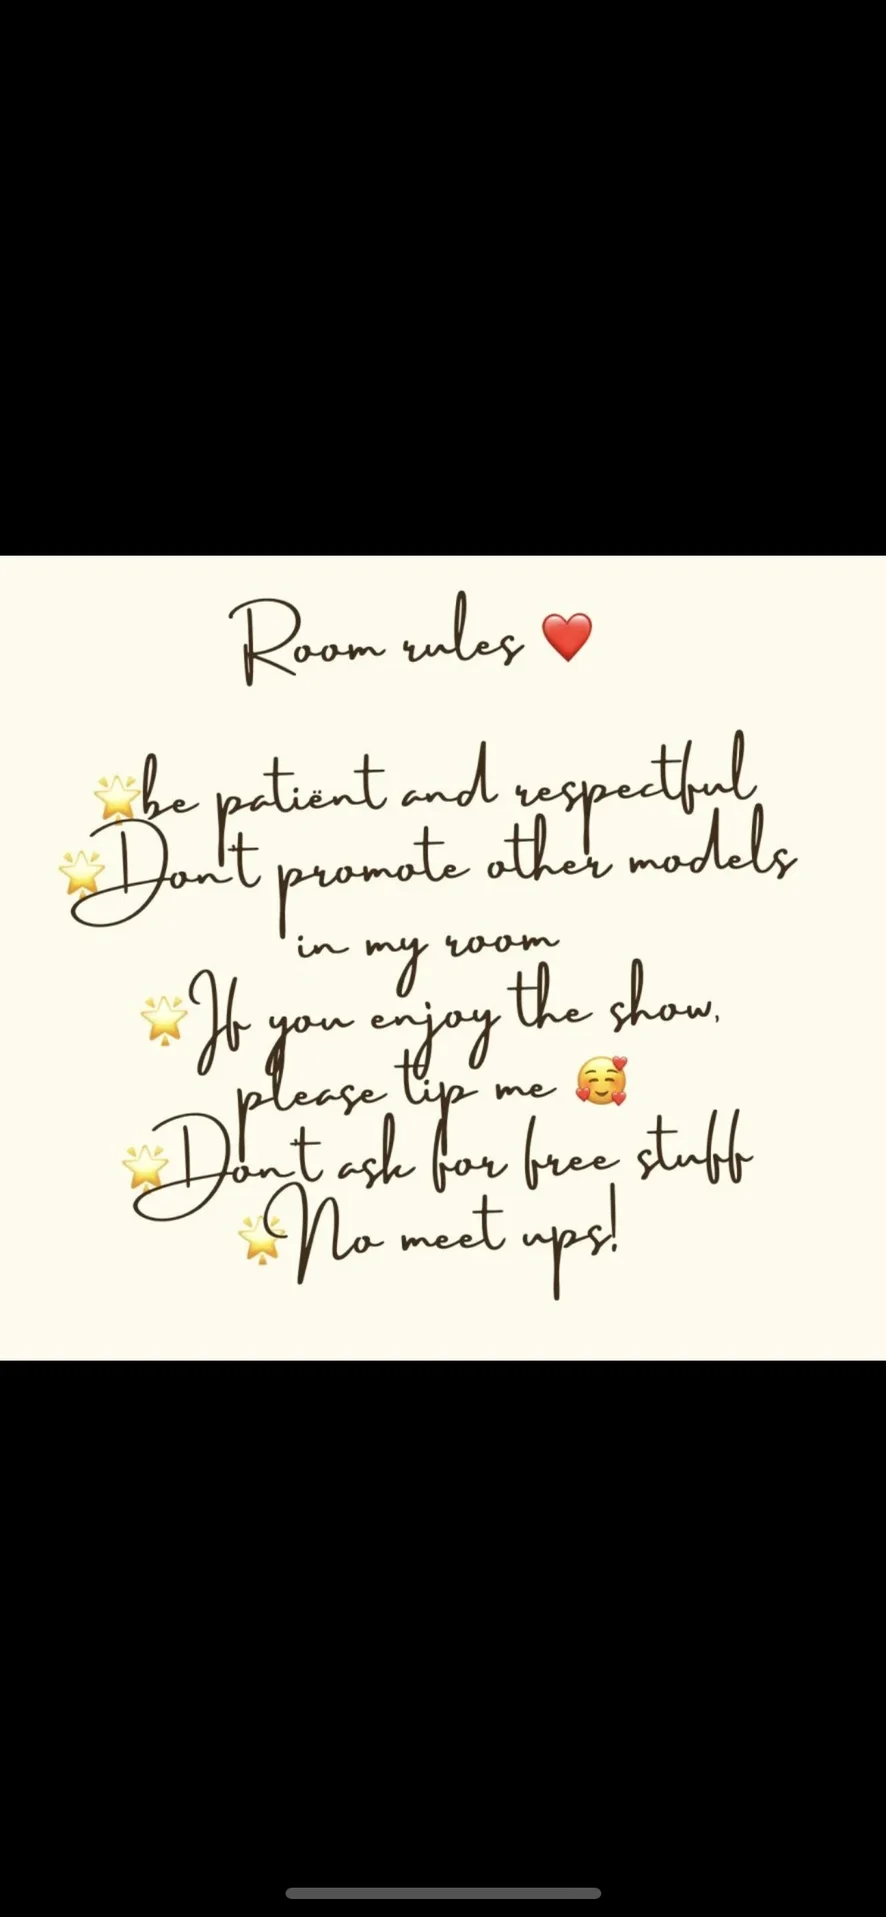 Room rules ❤️
🌟be patiënt and respectful
🌟Don't promote other models
in my room
🌟If you enjoy the show,
please tip me 🥰
🌟Don't ask for free stuff
🌟No meet ups!